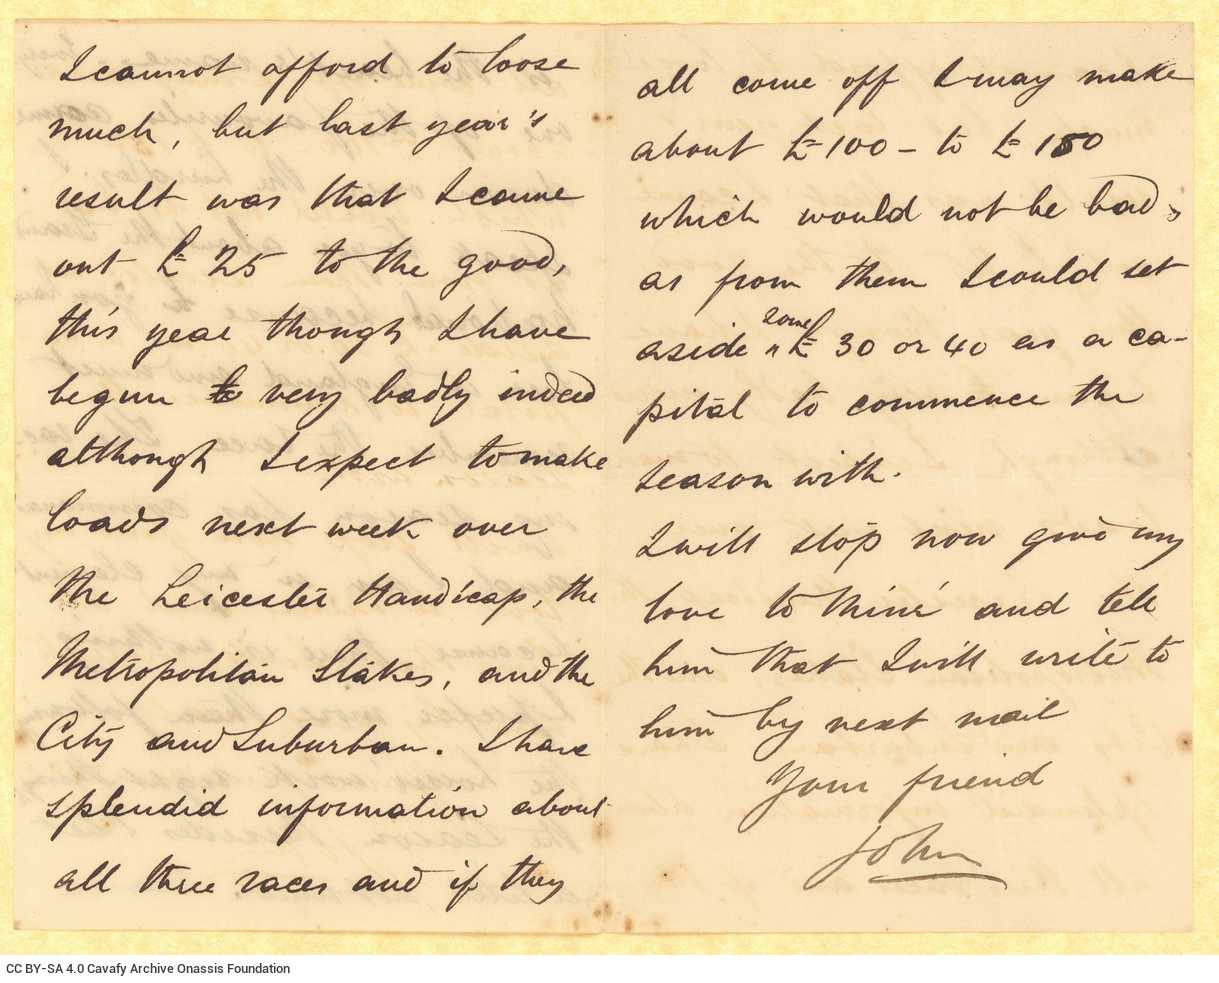 I cannot afford to loose
much, but last year's
result was that I came
out £ 25 to the good,
this year though I have
begun very badly indeed
although I expect to make
loads next week over
the Leicester Handicap, the
Metropolitan Stakes, and the
City and Suburban. I have
splendid information about
all three races and if they
all come off I may make
about £ 100 - to £ 150
which would not be bad,
as from them I could set
some
aside £ 30 or 40 as a ca-
pital to commence the
season with.
I will stop now give my
love to and tell
him that I will write to
him by next mail
Your friend
John
CC BY-SA 4.0 Cavafy Archive Onassis Foundation